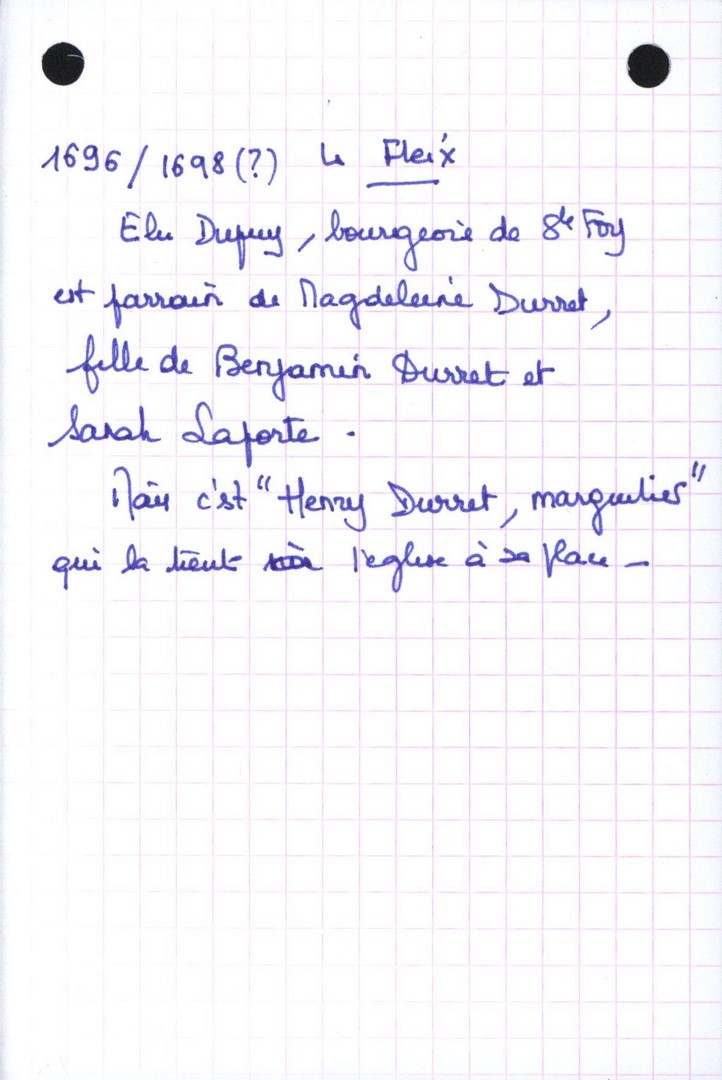 1696 / 1698 (?) Le Fleix
Elie Dupuy, bourgeois de Ste Foy
est parrain de Magdeleine Durret,
fille de Benjamin Durret et
Sarah Laporte.
Mais c'est "Henry Durret, marguilier"
qui la tient à l'eglise à sa place -